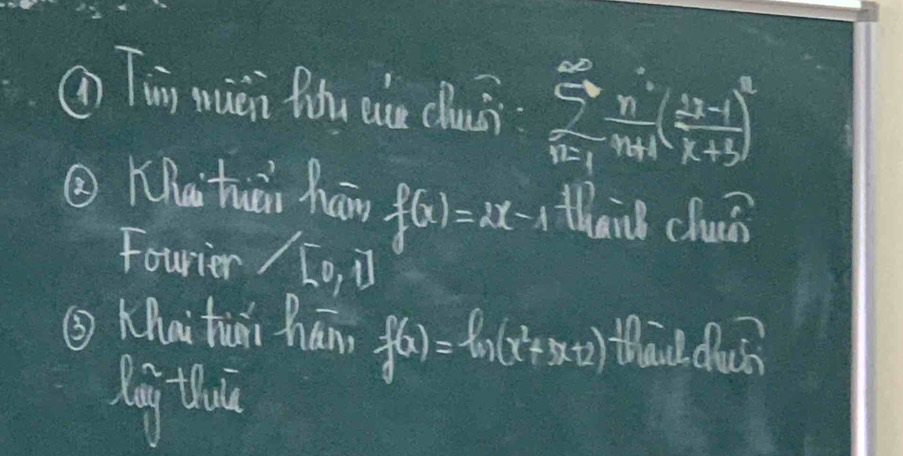 ① Tìm miền hội của chuỗi: \sum_{n=1}^{\infty} \frac{n}{n+1} \left(\frac{2x-1}{x+3}\right)^n
② Khai triển hàm f(x) = 2x-1 thành chuỗi
Fourier / [0,1]
③ Khai triển hàm f(x) = ln(x²+3x+2) thành chuỗi
lũy thừa